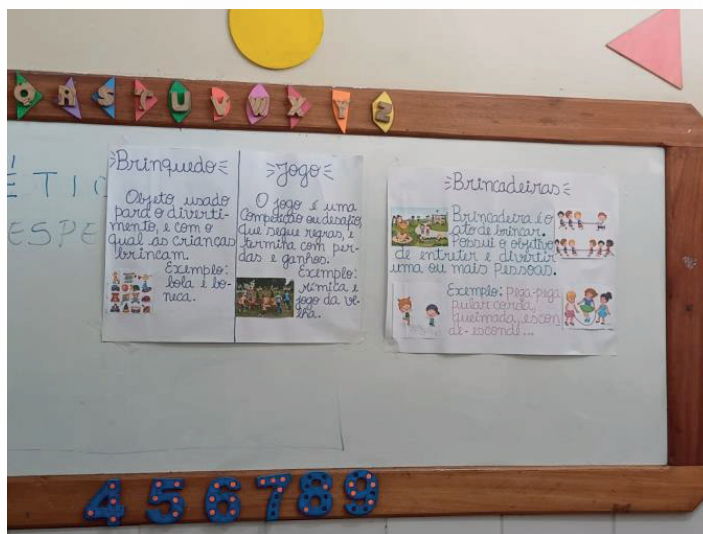 Q R S T U V W X Y Z
ÉTIC
ESPE
Brinquedo
Objeto usado
para o diverti-
mento, e com o
qual as crianças
brincam.
Exemplo:
bola e bo-
neca.
Jogo
O jogo é uma
Competição ou desafio,
que segue regras, e
termina com per-
das e ganhos.
Exemplo:
mímica e
jogo da ve-
lha.
Brincadeiras
Brincadeira é o
ato de brincar.
Possui o objetivo
de entreter e divertir
uma ou mais Pessoas.
Exemplo: pega-pega
pular corda,
queimada, escon
de-esconde...
4 5 6 7 8 9